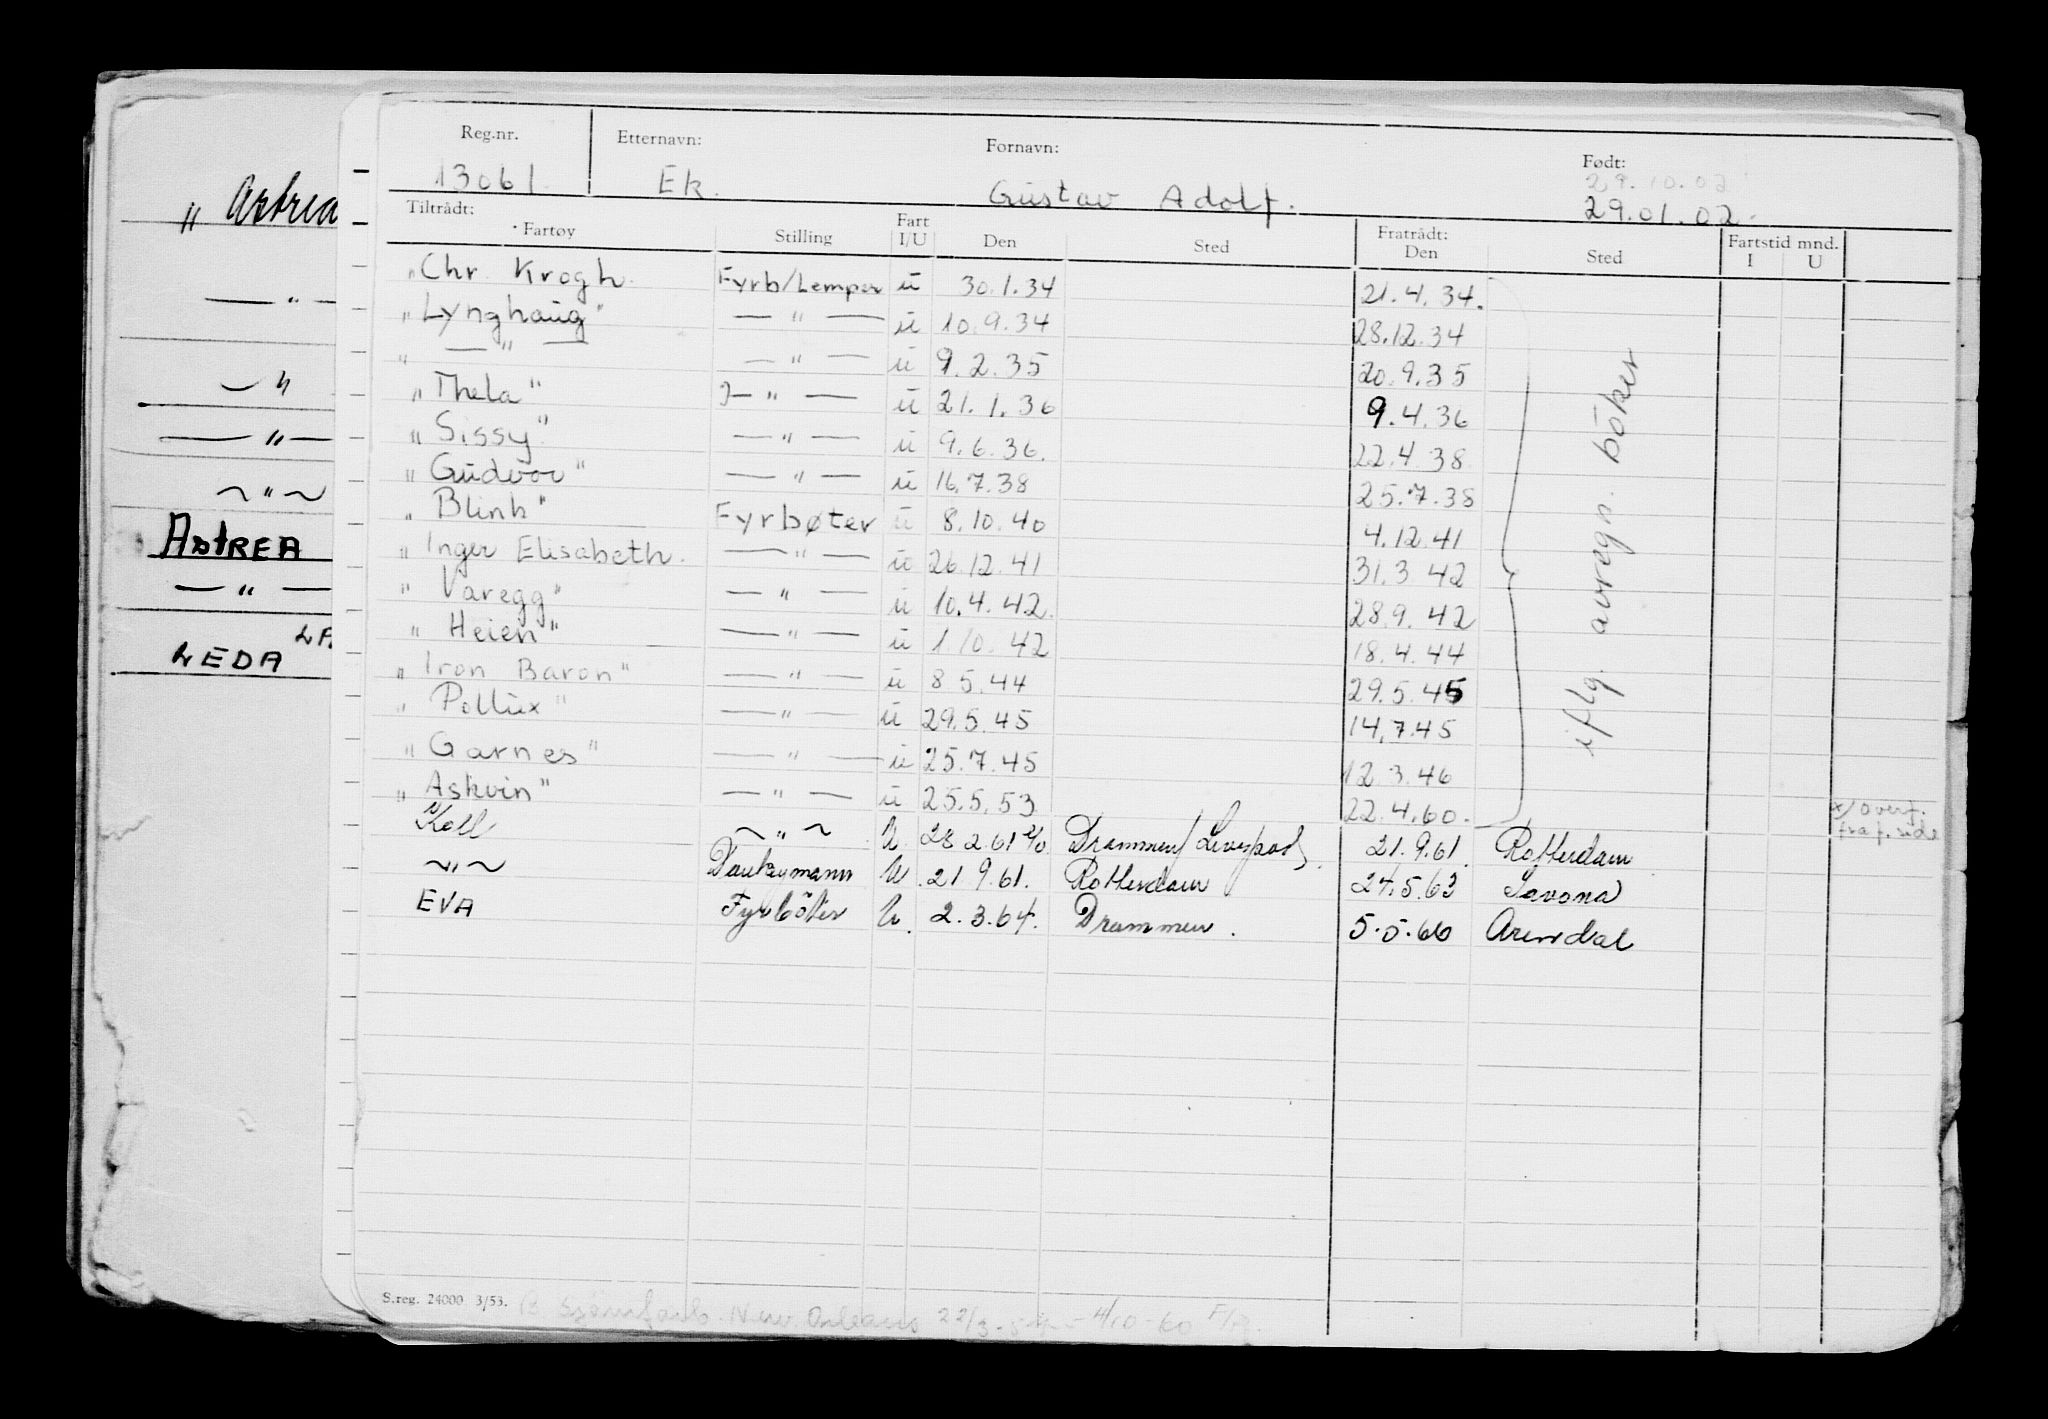 Reg.nr. Etternavn: Fornavn: Født:
29.10.02
13061 Ek. Gustav Adolf. 29.01.02.
Tiltrådt: Fart Fratrådt: Fartstid mnd.
Fartøy Stilling I/U Den Sted Den Sted I U
"Chr. Krogh. Fyrb/Lemper ü 30.1.34 21.4.34.
"Lynghaug" — " — ü 10.9.34 28.12.34
" — " — — " — ü 9.2.35 20.9.35
"Thela" — " — ü 21.1.36 9.4.36
"Sissy" — " — ü 9.6.36. 22.4.38
"Gudvor" — " — ü 16.7.38 25.7.38
"Blink" Fyrbøter ü 8.10.40 4.12.41
"Inger Elisabeth. — " — ü 26.12.41 31.3.42
"Varegg" — " — ü 10.4.42. 28.9.42
"Heien" — " — ü 1.10.42 18.4.44
"Iron Baron" — " — ü 8.5.44 29.5.45
"Pollux" — " — ü 29.5.45 14.7.45
"Garnes" — " — ü 25.7.45 12.3.46
"Askvin" — " — ü 25.5.53 22.4.60.
iflg. avregn. böker
x/overf.
fra f. side
Koll ~ " ~ U. 28.2.61 Drammen/Liverpool 21.9.61. Rotterdam
~ " ~ Donkeymann U. 21.9.61. Rotterdam 24.5.63 Savona
EVA Fyrböter U. 2.3.64. Drammen. 5.5.66 Arendal
S.reg. 24000 3/53. New Orleans
" Astrea
— " —
— "
— " —
~ " ~
ASTREA
— " —
LA
LEDA